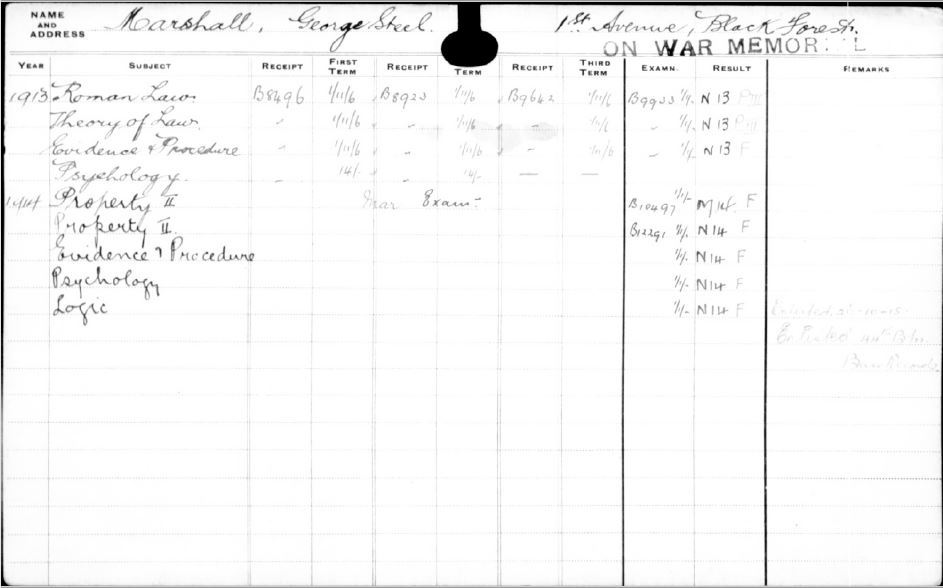 NAME AND ADDRESS Marshall, George Steel. 1st Avenue, Black Forest.
ON WAR MEMORIAL
YEAR SUBJECT RECEIPT FIRST TERM RECEIPT TERM RECEIPT THIRD TERM EXAMN. RESULT REMARKS
1913 Roman Law. B8496 1/11/6 B8923 1/11/6 B9642 1/11/6 B9933 1/1/- N 13 P III
Theory of Law. " 1/11/6 " 1/11/6 " 1/11/6 " 1/1/- N 13 P III
Evidence & Procedure " 1/11/6 " 1/11/6 " 1/11/6 " 1/1/- N 13 F
Psychology. " 14/- " 14/- — —
1914 Property II Exam: B10497 1/1/- M14. F
Property II. B12291 1/1/- N14 F
Evidence & Procedure 1/1/- N14 F
Psychology 1/1/- N14 F
Logic 1/1/- N14 F
Enlisted